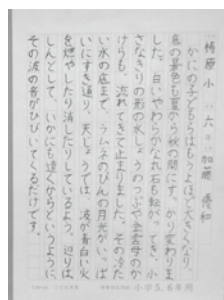 楢原小 六年 加藤 優和
かにの子どもらはもうよほど大きくなり、
底の景色も夏から秋の間にすっかり変わりま
した。白いやわらかな丸石も転がってき、小
さなきりの形の水しょうのつぶや金雲母のか
けらも、流れてきて止まりました。その冷た
い水の底まで、ラムネのびんの月光がいっぱ
いにすき通り、天じょうでは、波が青白い火
を燃やしたり消したりしているよう。辺りは
しんとして、いかにも遠くからというように、
その波の音がひびいてくるだけです。
小学5、6年用